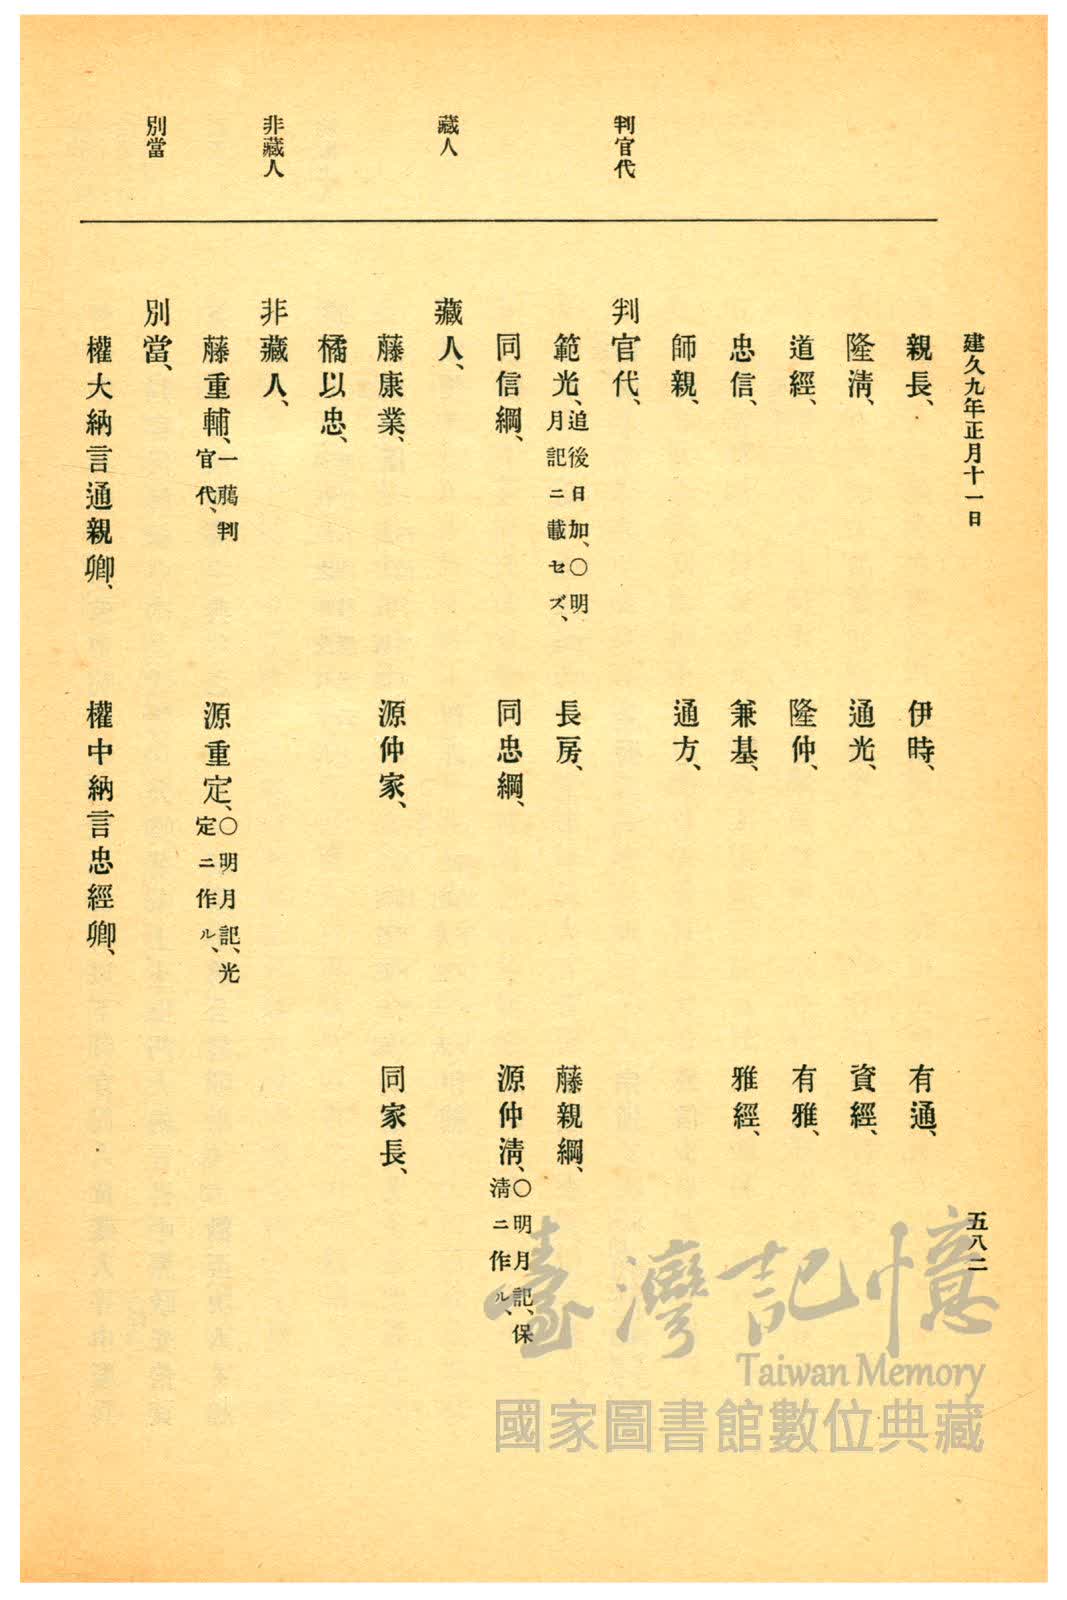 建久九年正月十一日
五八二
親長、 伊時、 有通、
隆淸、 通光、 資經、
道經、 隆仲、 有雅、
忠信、 兼基、 雅經、
師親、 通方、
判官代
判官代、
範光、追後日加、〇明月記ニ載セズ、 長房、 藤親綱、
同信綱、 同忠綱、 源仲淸、〇明月記、保淸ニ作ル、
藏人
藏人、
藤康業、 源仲家、 同家長、
橘以忠、
非藏人
非藏人、
藤重輔、一﨟判官代、 源重定、〇明月記、光定ニ作ル、
別當
別當、
權大納言通親卿、 權中納言忠經卿、
臺灣記憶
Taiwan Memory
國家圖書館數位典藏